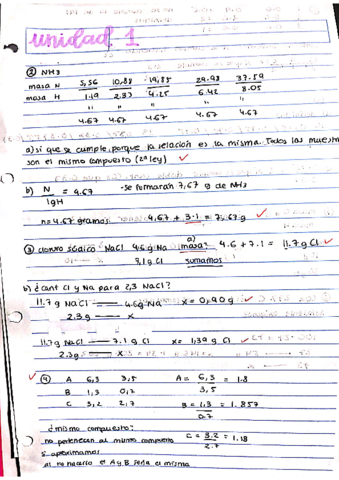 unidad 1
② NH3
masa N 5,56 10,88 19,85 29.98 37.59
masa H 1.19 2.33 4.25 6.42 8.05
" " " "
4.67 4.67 4.67 4.67 4.67
a) sí que se cumple, porque la relación es la misma. Todas las muestr
son el mismo compuesto (2ª ley)
b) N/1gH = 4.67 -se formarán 7,67 g de NH3
no 4.67 gramos: 4,67 + 3.1 =
③ cloruro sódico NaCl 4.6g Na a) masa: 4.6 + 7.1 = 11.7 g Cl
7,1 g Cl sumamos
b) ¿cant Cl y Na para 2,3 NaCl?
11.7 g NaCl 4.6g Na x= 0,90 g
2.3g x
11.7g NaCl 7.1 g Cl x= 1,39 g Cl
2.3g x
④ A 6,3 3,5 A= 6,3/3,5 = 1.8
B 1,3 0,7 B = 1,3/0.7 = 1.857
C 3,2 2,7 C = 3.2/2.7 = 1.18
¿mismo compuesto?
no pertenecen al mismo compuesto
si aproximamos
al no hacerlo el A y B sería el misma